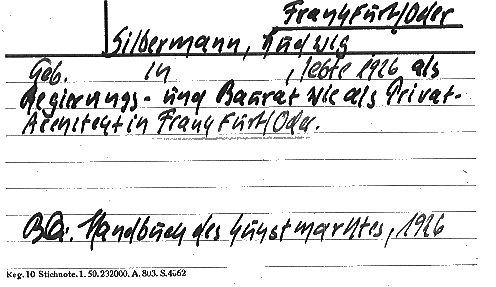 Frankfurt/Oder
Silbermann, Ludwig
Geb. in , lebte 1926 als
Regierungs- und Baurat wie als Privat-
Architekt in Frankfurt/Oder.
BQ: Handbuch des Kunstmarktes, 1926
Keg. 10 Stichnote. 1. 50. 232000. A. 803. S. 4562